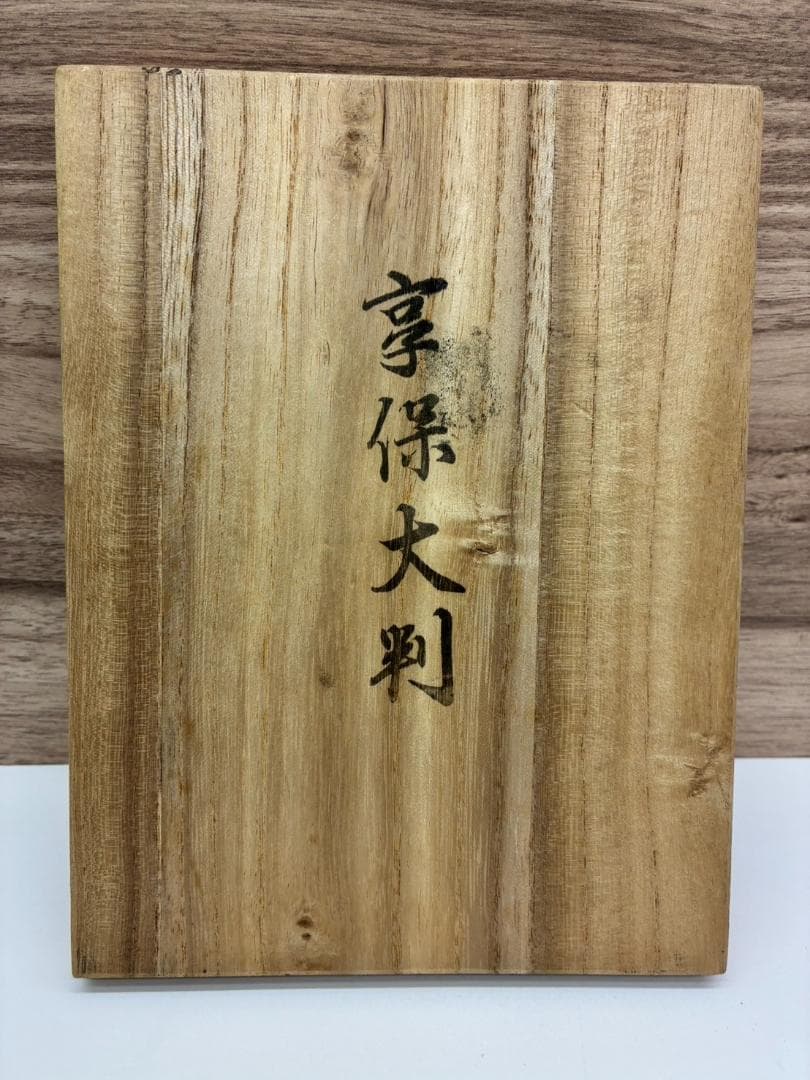 享保大判